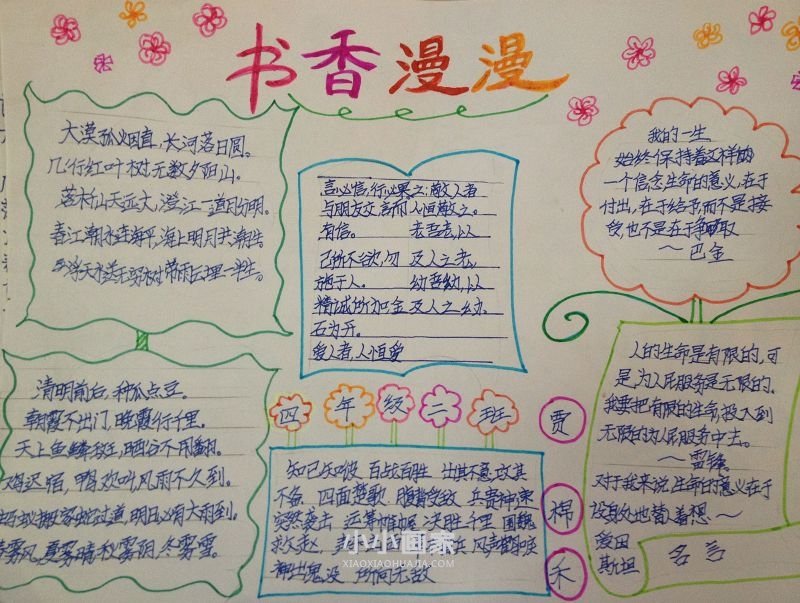 书香漫漫
大漠孤烟直,长河落日圆。
几行红叶树,无数夕阳山。
落木千山天远大,澄江一道月分明。
春江潮水连海平,海上明月共潮生
言必信,行必果
与朋友交,言而
有信。
己所不欲,勿
施于人。
精诚所加金
石为开。
爱人者,人恒爱
之;敬人者
人恒敬之。
老吾老,以
及人之老,
幼吾幼,以
及人之幼.
我的一生
始终保持着这样的
一个信念生命的意义,在于
付出,在于给予,而不是接
受,也不是在于争取
~巴金
清明前后,种瓜点豆。
朝霞不出门,晚霞行千里。
天上鱼鳞斑,晒谷不用翻。
鸡迟宿,鸭欢叫风雨不久到。
蚂蚁搬家蛇过道,明日必有大雨到。
春雾风,夏雾晴,秋雾阴,冬雾雪。
四年级二班
贾棉禾
知己知彼 百战百胜 出其不意 攻其
不备 四面楚歌 腹背受敌 兵贵神速
突然袭击 运筹帷幄 决胜千里 围魏
救赵 风声鹤唳
神出鬼没 所向无敌
人的生命是有限的,可
是,为人民服务是无限的.
我要把有限的生命,投入到
无限的为人民服务中去。
~雷锋
对于我来说,生命的意义在于
设身处地替着想~
爱因
斯坦
名言
小小画家
XIAOXIAOHUAJIA.COM